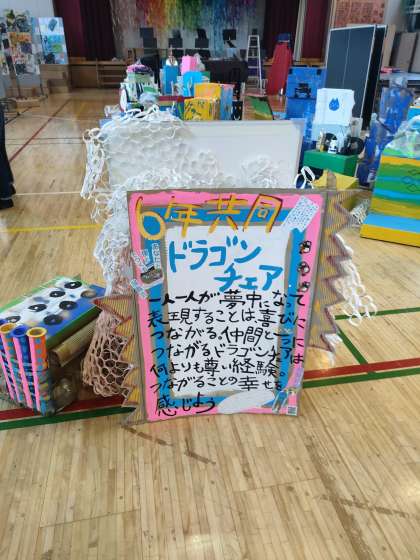 6年共同
ドラゴン
チェア
一人一人が夢中になって
表現することは喜びに
つながる。仲間と
つながるドラゴンチェアには
何よりも尊い経験。
つながることの幸せを
感じよう